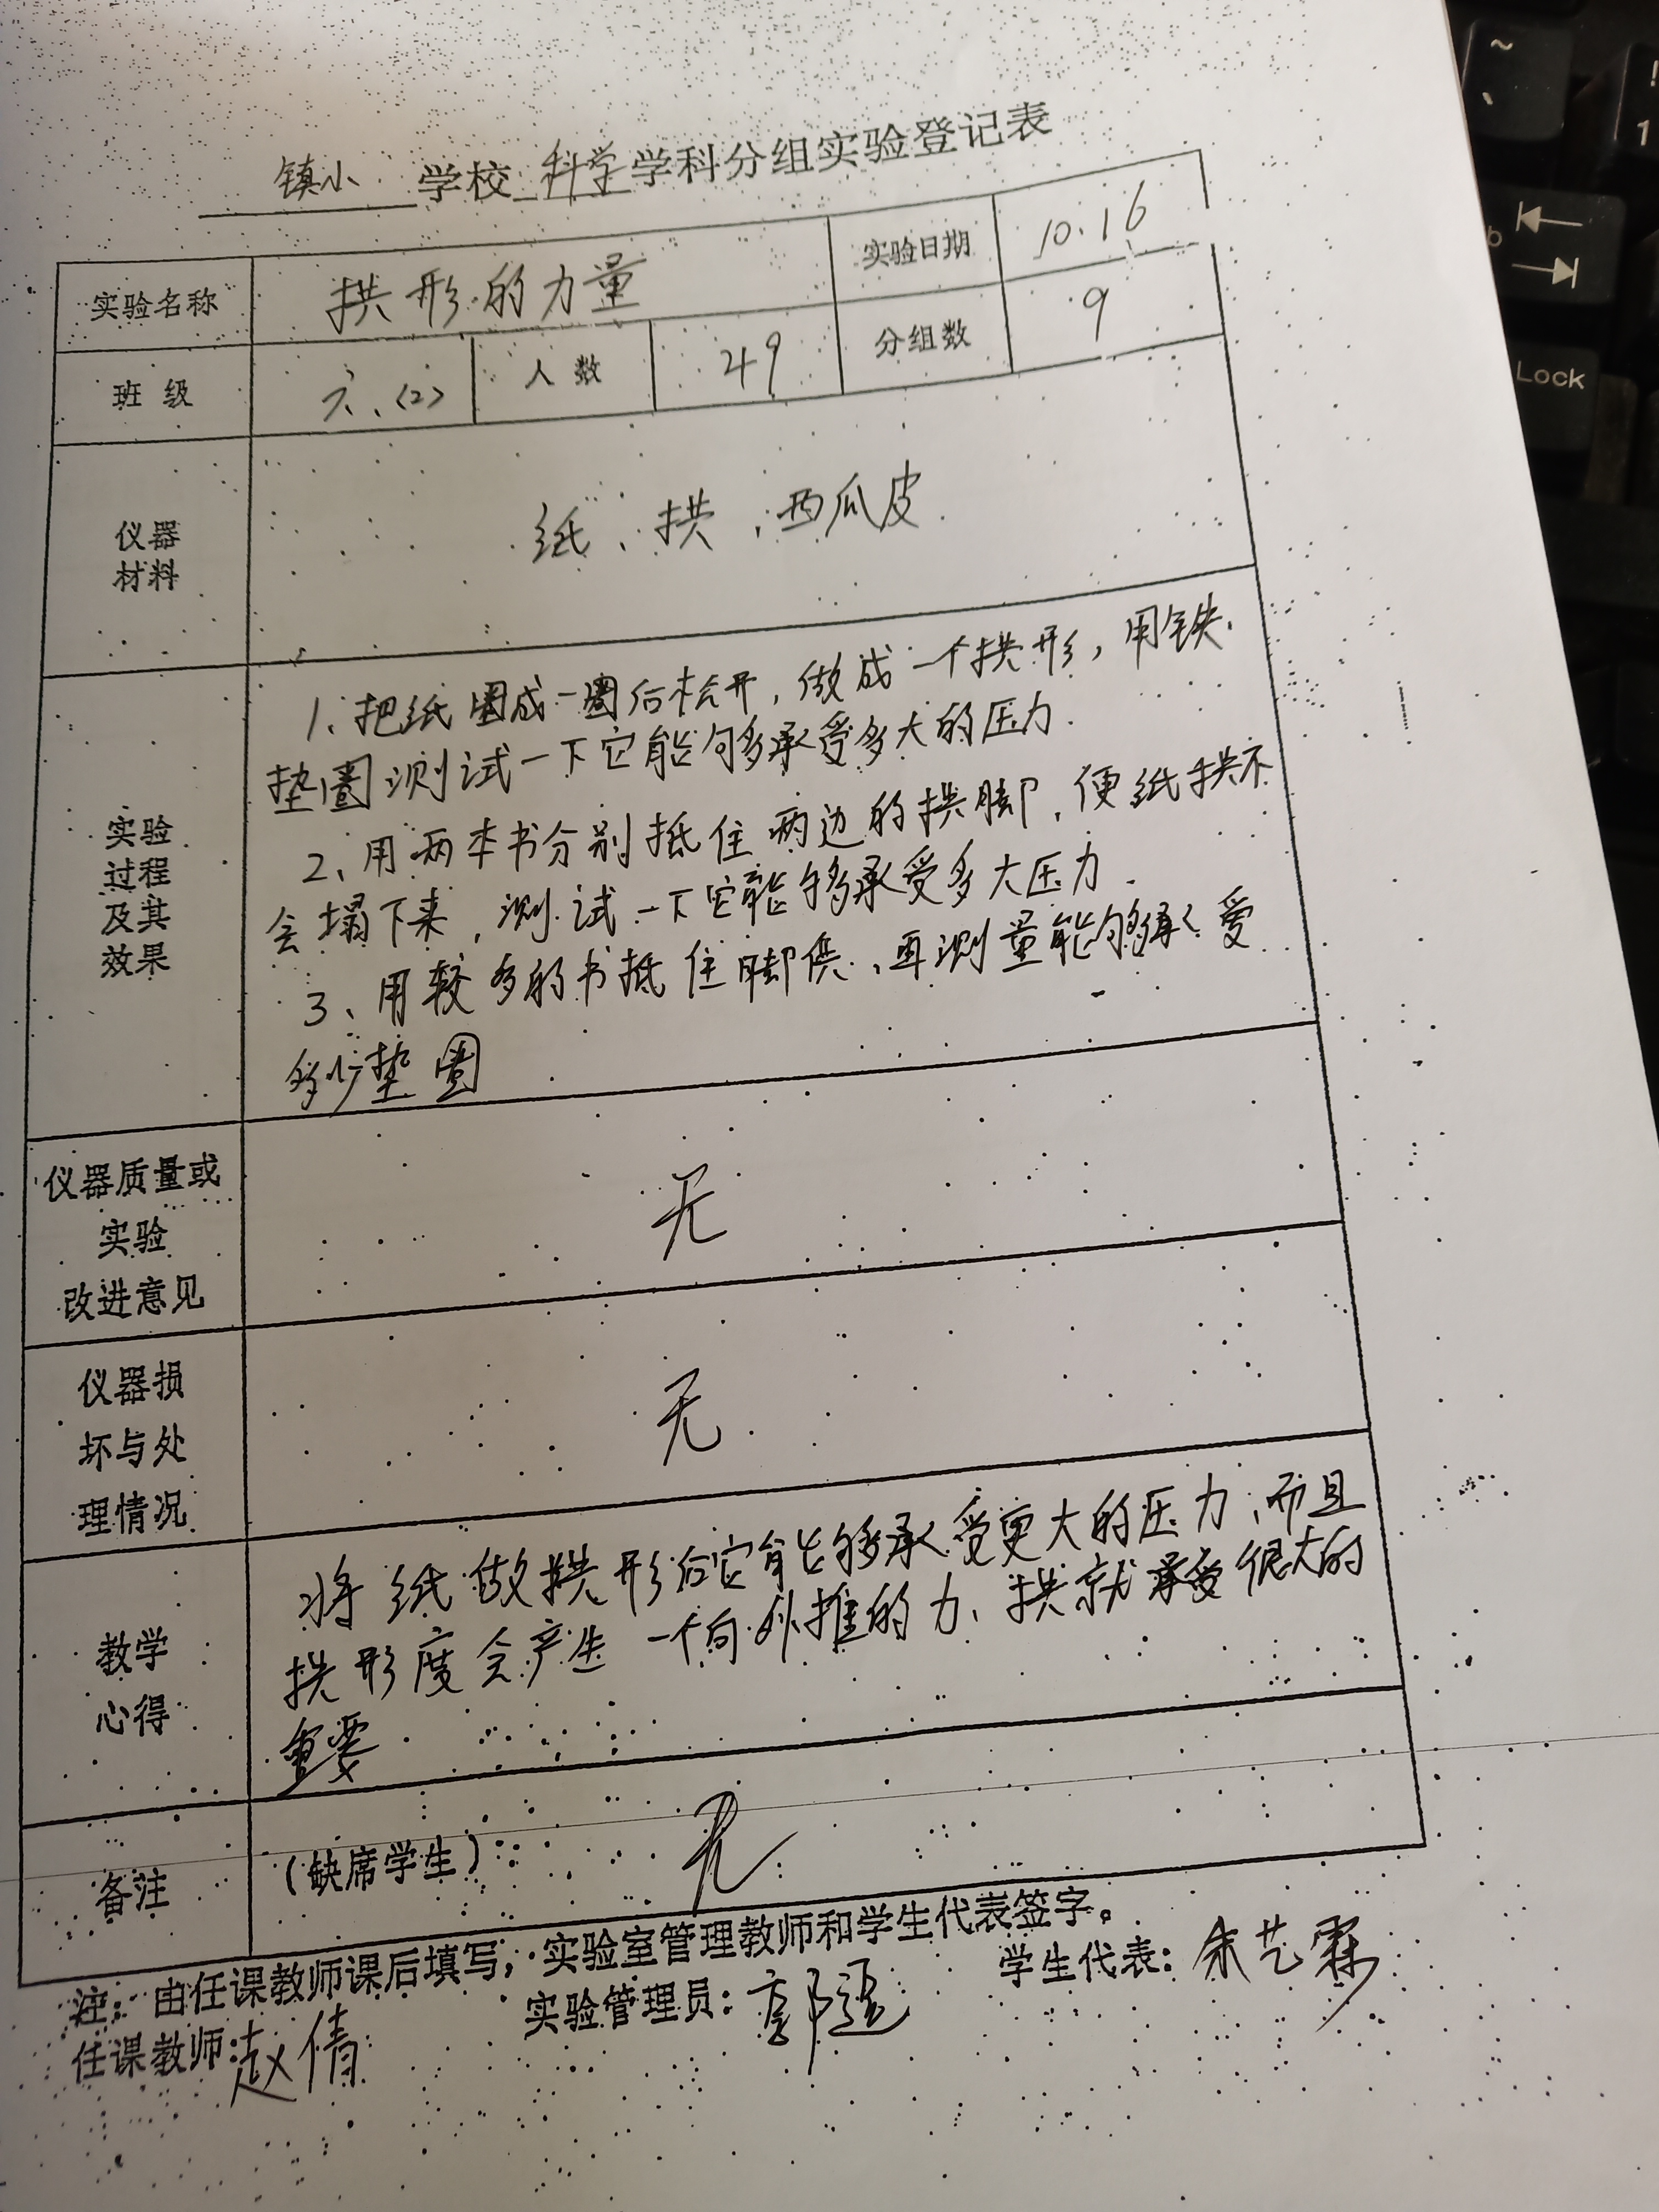 镇小 学校 科学 学科分组实验登记表
实验名称 拱形的力量 实验日期 10.16
班级 六、(2) 人数 49 分组数 9
仪器
材料
纸、拱、西瓜皮
实验
过程
及其
效果
1、把纸圈成一圈后松开，做成一个拱形，用铁
垫圈测试一下它能够承受多大的压力.
2、用两本书分别抵住两边的拱脚，使纸拱不
会塌下来，测试一下它能够承受多大压力.
3、用较多的书抵住脚供，再测量能够承受
多少垫圈
仪器质量或
实验
改进意见
无
仪器损
坏与处
理情况
无
教学
心得
将纸做拱形后它能够承受更大的压力，而且
拱形度会产生一个向外推的力、拱就承受很大的
重要
备注 (缺席学生) 无
注：由任课教师课后填写，实验室管理教师和学生代表签字。
任课教师：赵倩 实验管理员： 学生代表：朱艺霖
~
`
!
1
Lock